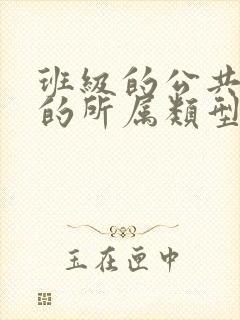 班級的公共
的所属類型
玉在匣中